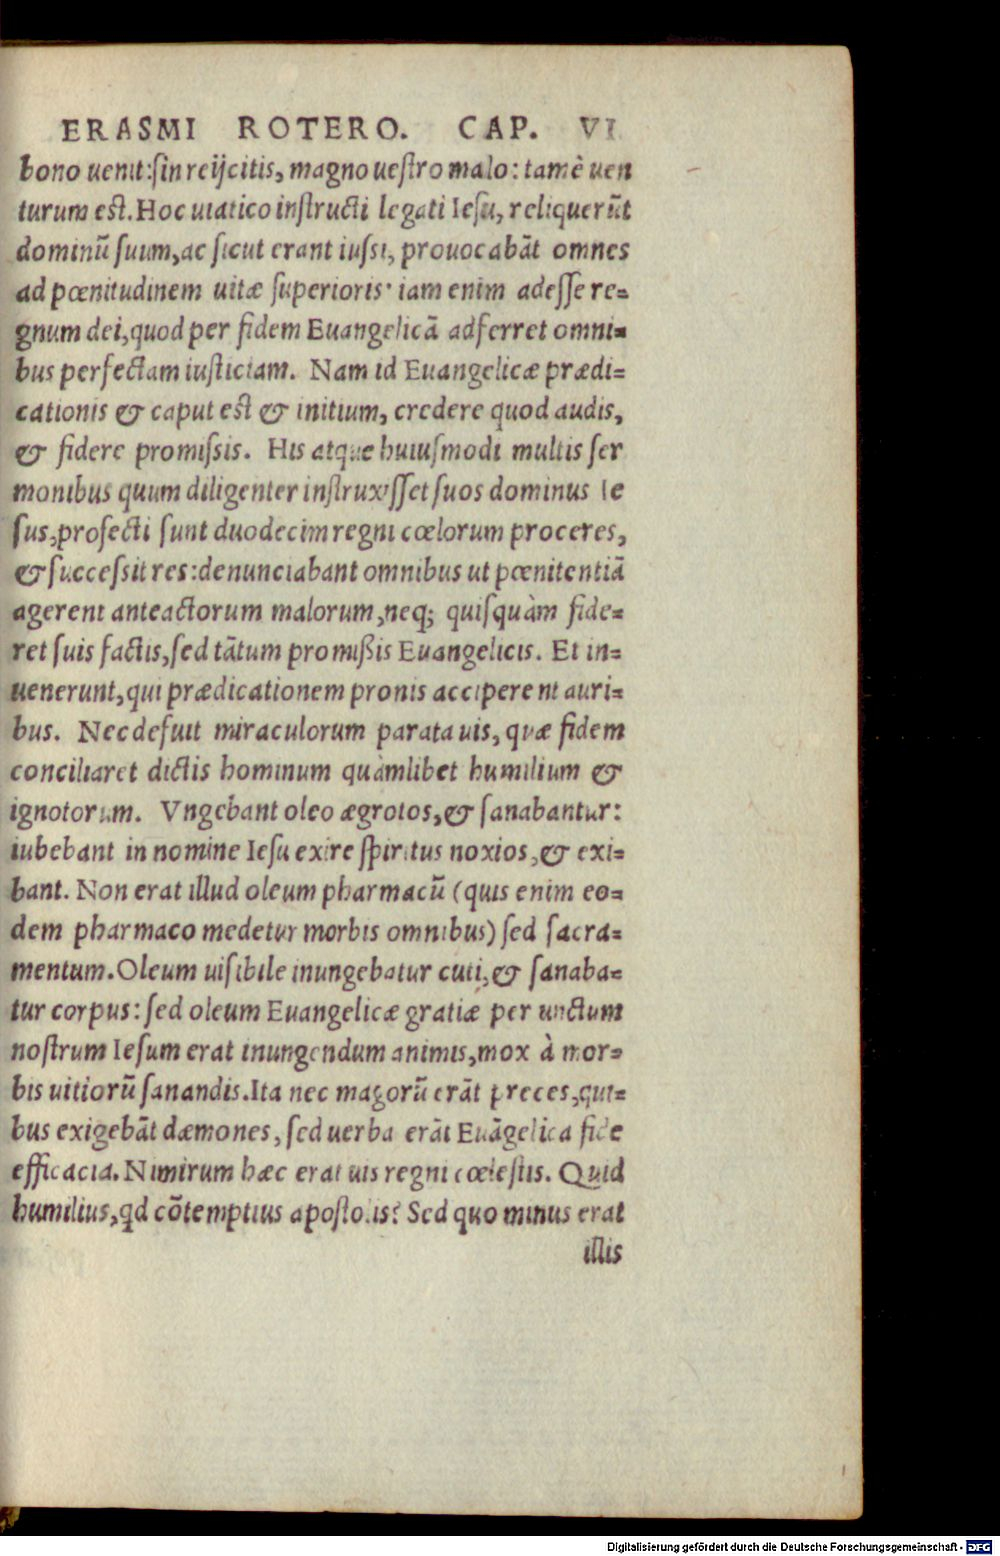 ERASMI ROTERO. CAP. VI
bono uenit:ſin reijcitis, magno ueſtro malo: tamẽ uen
turum eſt. Hoc uiatico inſtructi legati Ieſu, reliquerũt
dominũ ſuum, ac ſicut erant iuſsi, prouocabãt omnes
ad pœnitudinem uitæ ſuperioris· iam enim adeſſe re=
gnum dei, quod per fidem Euangelicã adferret omni=
bus perfectam iuſticiam. Nam id Euangelicæ prædi=
cationis & caput eſt & initium, credere quod audis,
& fidere promiſsis. His atque huiuſmodi multis ſer
monibus quum diligenter inſtruxiſſet ſuos dominus Ie
ſus, profecti ſunt duodecim regni cœlorum proceres,
& ſucceſsit res: denunciabant omnibus ut pœnitentiã
agerent anteactorum malorum, neq; quiſquàm fide=
ret ſuis factis, ſed tãtum promißis Euangelicis. Et in=
uenerunt, qui prædicationem pronis acciperent auri=
bus. Nec defuit miraculorum parata uis, quæ fidem
conciliaret dictis hominum quàmlibet humilium &
ignotorum. Vngebant oleo ægrotos, & ſanabantur:
iubebant in nomine Ieſu exire ſpiritus noxios, & exi=
bant. Non erat illud oleum pharmacũ (quis enim eo=
dem pharmaco medetur morbis omnibus) ſed ſacra=
mentum. Oleum uiſibile inungebatur cuti, & ſanaba=
tur corpus: ſed oleum Euangelicæ gratiæ per unctum
noſtrum Ieſum erat inungendum animis, mox à mor=
bis uitiorũ ſanandis. Ita nec magorũ erãt preces, qui=
bus exigebãt dæmones, ſed uerba erãt Euãgelica fide
efficacia. Nimirum hæc erat uis regni cœleſtis. Quid
humilius, qd cõtemptius apoſtolis? Sed quo minus erat
illis
Digitalisierung gefördert durch die Deutsche Forschungsgemeinschaft - DFG